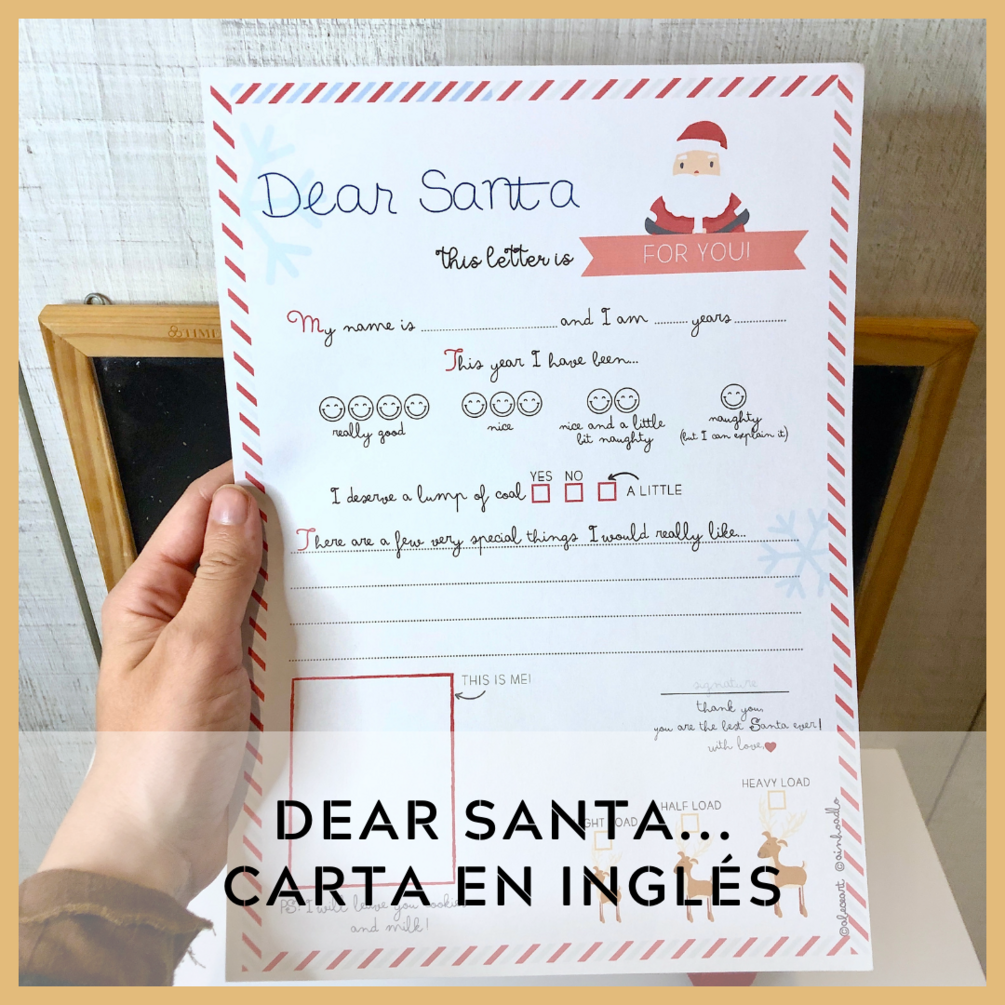 &TIME
Dear Santa
this letter is FOR YOU!
My name is ........................ and I am ....... years ...........
This year I have been...
really good
nice
nice and a little
bit naughty
naughty
(but I can explain it)
I deserve a lump of coal YES NO A LITTLE
There are a few very special things I would really like...
THIS IS ME!
signature
thank you,
you are the best Santa ever!
with love,
HEAVY LOAD
HALF LOAD
GHT LOAD
DEAR SANTA...
CARTA EN INGLÉS
PS: I will leave you cookie
and milk!